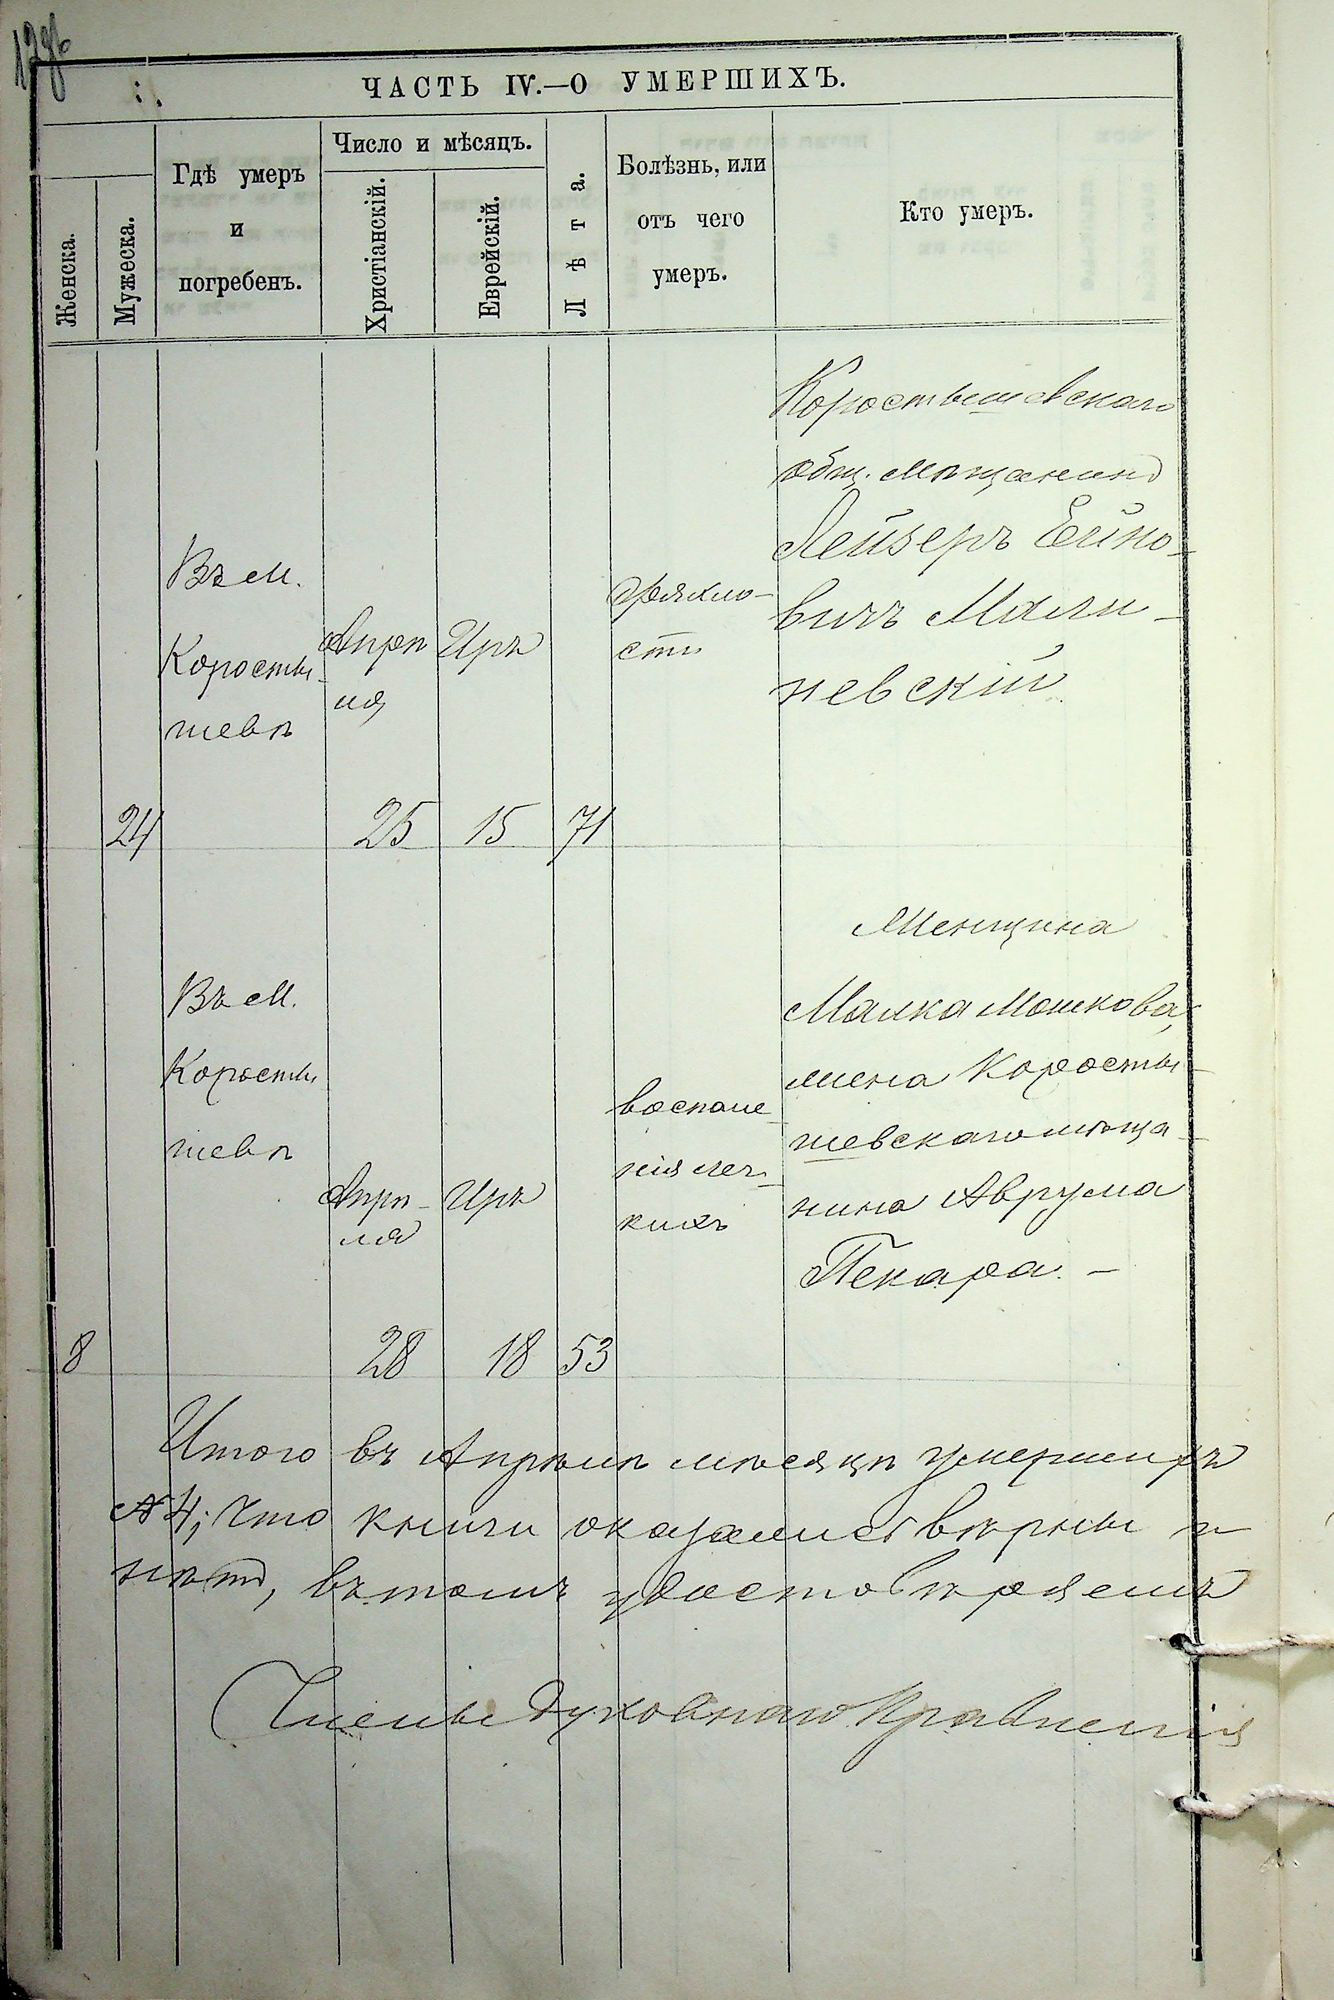 ЧАСТЬ IV.—О УМЕРШИХЪ.
Женска.
Мужеска.
Гдѣ умеръ
и
погребенъ.
Число и мѣсяцъ.
Христіанскій.
Еврейскій.
Лѣта.
Болѣзнь, или
отъ чего
умеръ.
Кто умеръ.
24
Въ м.
Коросты-
шевѣ
Апрѣ
ля
25
Иръ
15
71
дряхло-
сти
Коростышевскаго
общ. мѣщанинъ
Лейзеръ Ейно-
вичъ Мали-
невскій
8
Въ м.
Коросты
шевѣ
Апрѣ-
ля
28
Иръ
18
53
воспале-
нія лег-
кихъ
Женщина
Малка Мошкова,
жена Коросты-
шевскаго мѣща-
нина Аврума
Пекара. —
Итого въ Апрѣлѣ мѣсяцѣ умершихъ
4; что книги оказались вѣрны и
въ томъ удостовѣряемъ
Члены Духовнаго Правленія